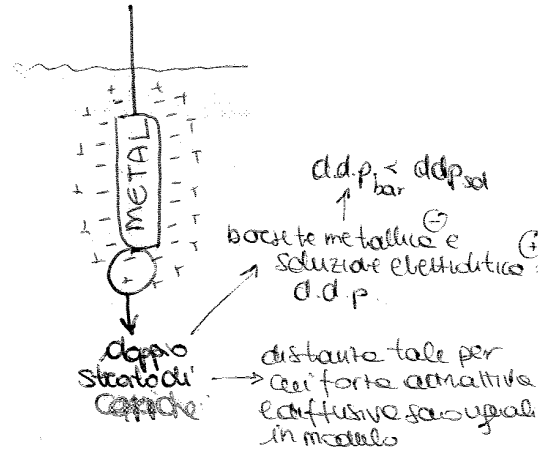 METAL
d.d.p bar < ddp sol
barrette metallica ⊖ e
soluzione elettrolitica ⊕ =
d.d.p.
doppio
strato di
cariche
distanza tale per
cui forze attrattive
e diffusive sono uguali
in modulo